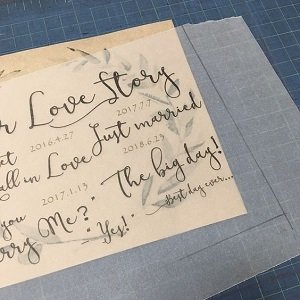 r Love Story
2016.4.27
2017.7.7
et
Just married
all in Love
2018.6.23
2017.1.13
The big day!
you
Best day ever...
rry Me?
"Yes!"